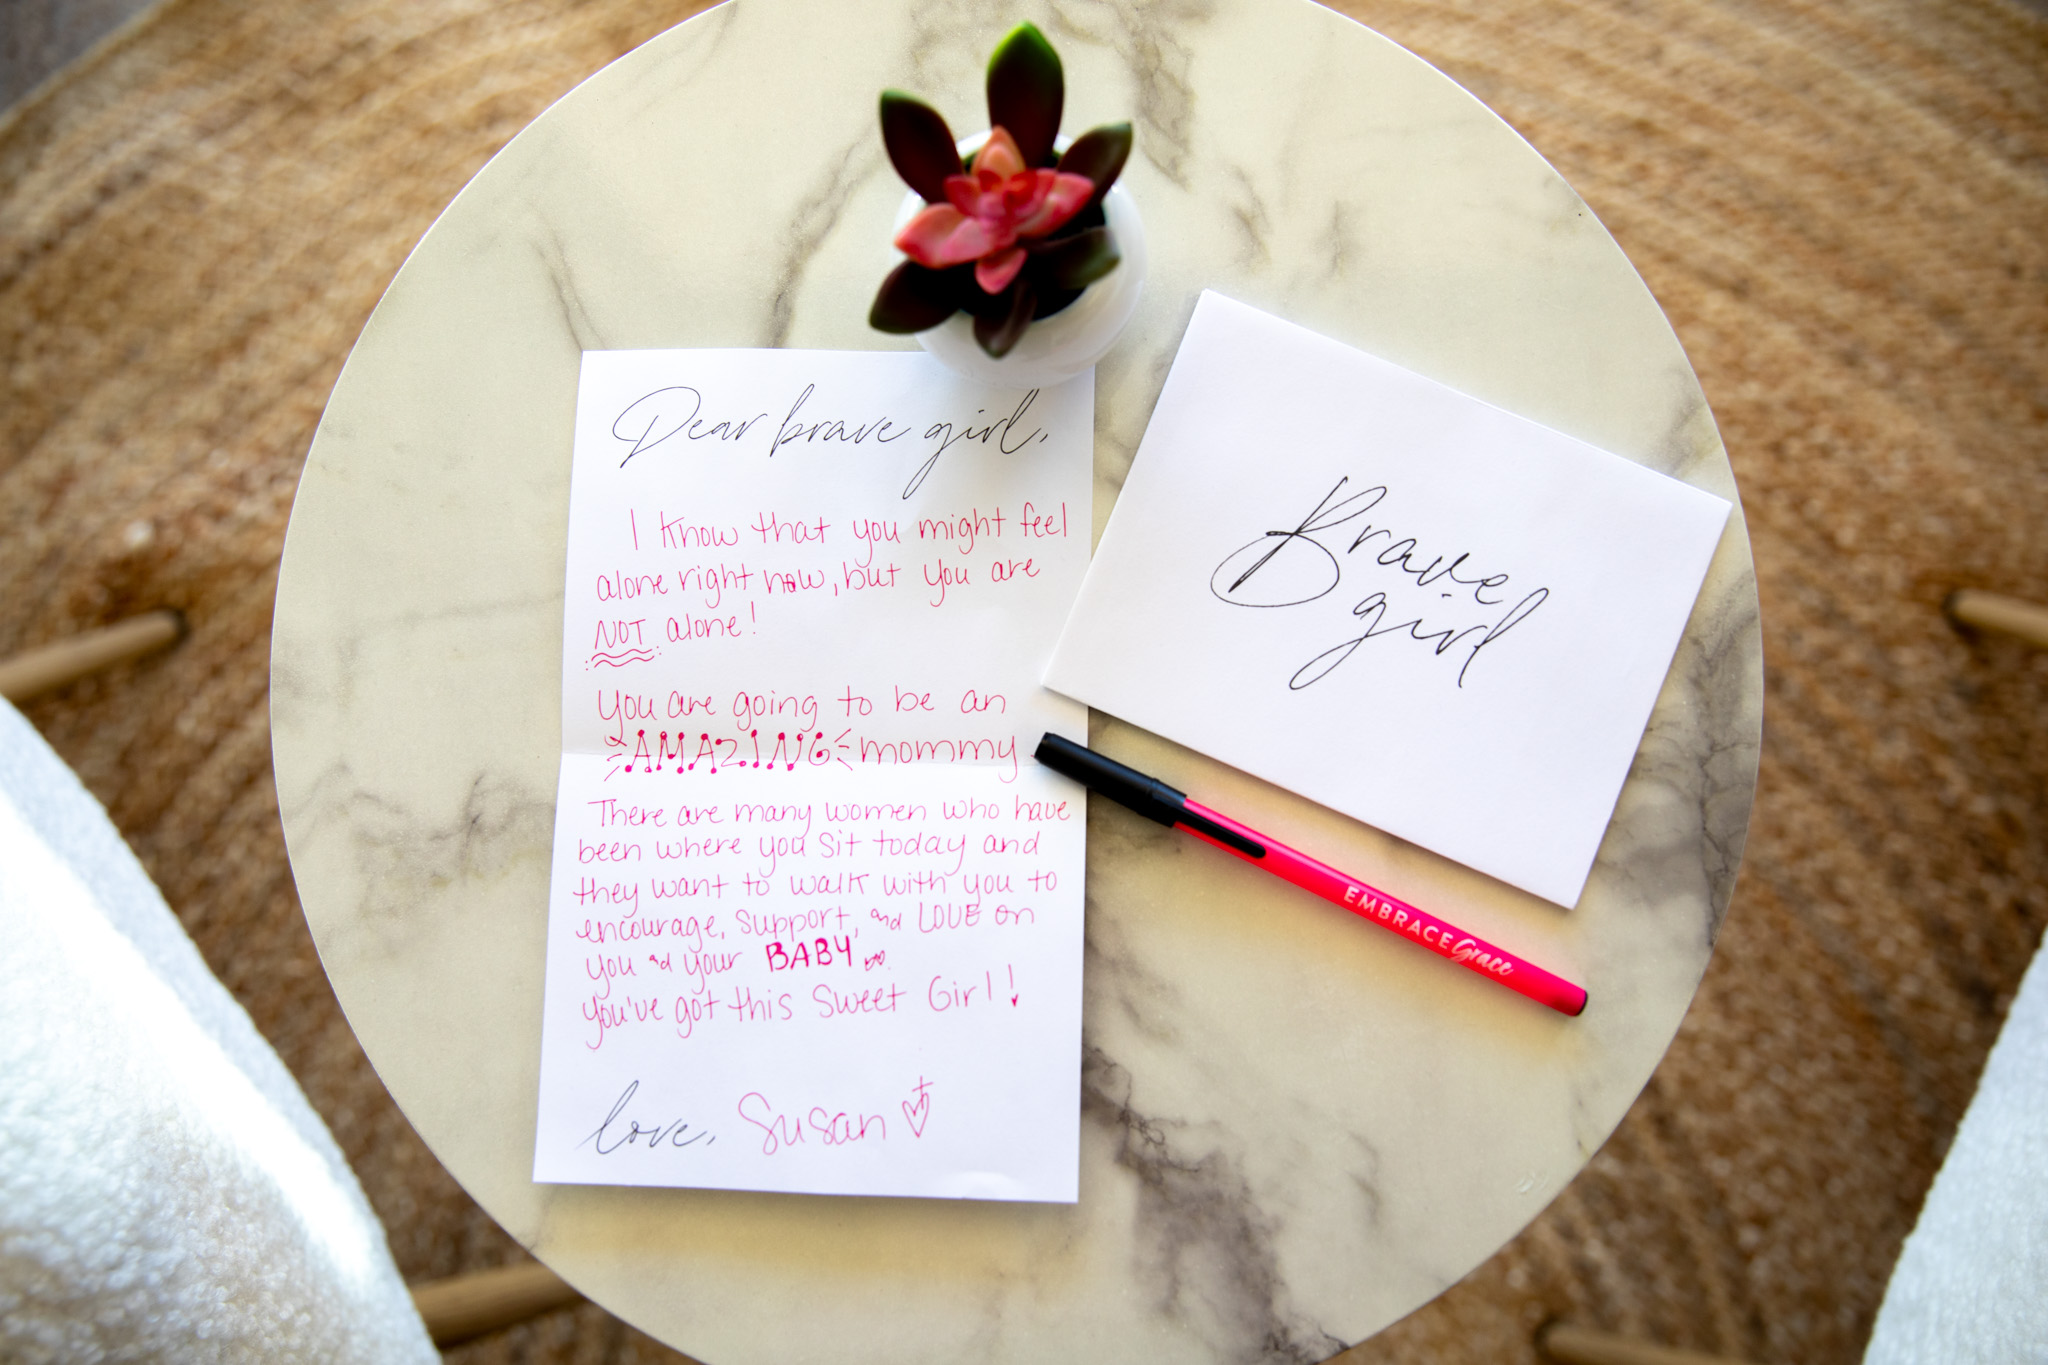 Dear brave girl,
I know that you might feel
alone right now, but you are
NOT alone!
You are going to be an
AMAZING mommy
There are many women who have
been where you sit today and
they want to walk with you to
encourage, support, and LOVE on
you and your BABY
You've got this Sweet Girl!
love, Susan
Brave
girl
EMBRACE Grace